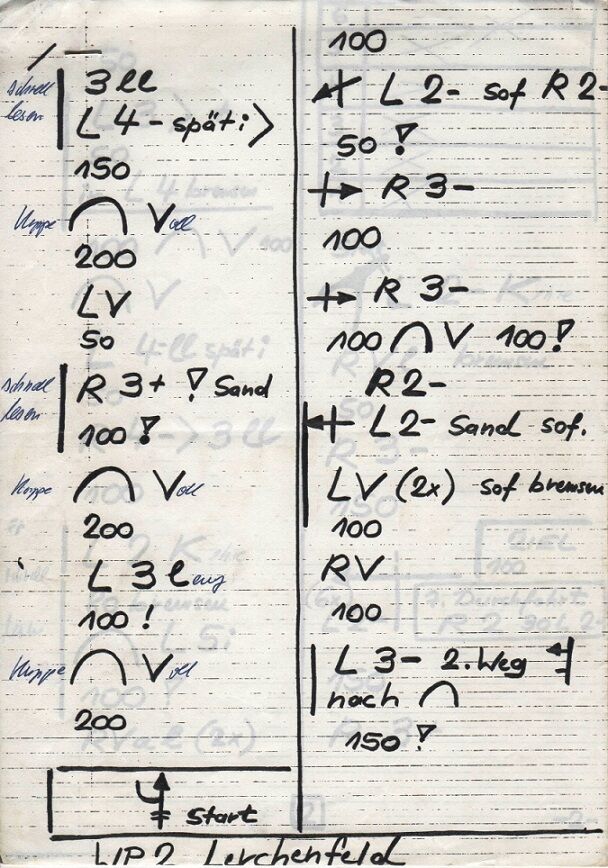 schnell lesen
3 ll
L 4 - späti >
150
Kuppe Voll
200
LV
50
schnell lesen
R 3+ ! Sand
100 !
Kuppe Voll
200
L 3 lang
100 !
Kuppe Voll
200
Start
100
L 2- sof R 2-
50 !
R 3-
100
R 3-
100 V 100 !
R 2-
L 2- Sand sof.
LV (2x) sof bremsen
100
RV
100
L 3- 2. Weg
nach
150 !
WP 2 Lerchenfeld